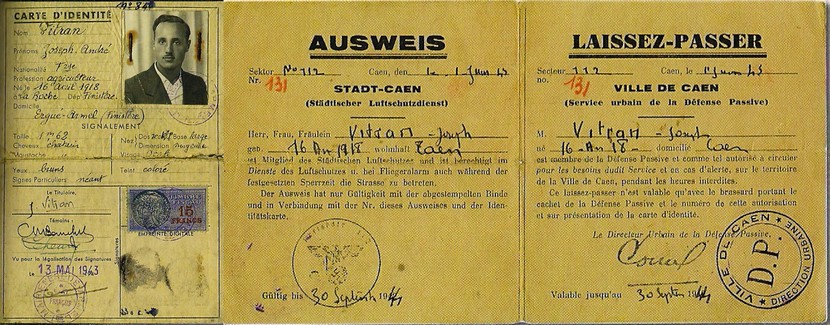 CARTE D'IDENTITÉ
Nom Vitran
Prénoms Joseph, André
Nationalité Fse
Profession agriculteur
Né le 16 avril 1918
à La Roche Dép Finistère
Ergué-Armel (Finistère)
SIGNALEMENT
Taille 1m62
Cheveux chatain
Moustache
Nez
Base large
Dimension
Visage
Yeux bruns
Teint coloré
Signes Particuliers néant
Le Titulaire,
J. Vitran
Témoins :
TIMBRE FISCAL
15
FRANCS
EMPREINTE DIGITALE
Vu pour la légalisation des Signatures
13 MAI 1943
AUSWEIS
Sektor No 112 Caen, den 1 Juin 43
Nr. 131
STADT-CAEN
(Städtischer Luftschutzdienst)
Herr, Frau, Fräulein Vitran - Joseph
geb. 16 Av 1918 wohnhaft Caen
ist Mitglied des Städtischen Luftschutzes und ist berechtigt im
Dienste des Luftschutzes u. bei Fliegeralarm auch während der
festgesetzten Sperrzeit die Strasse zu betreten.
Der Ausweis hat nur Gültigkeit mit der abgestempelten Binde
und in Verbindung mit der Nr. dieses Ausweises und der Iden-
titätskarte.
Gültig bis 30 Septemb 1944
LAISSEZ-PASSER
Secteur 112 Caen, le 1 Juin 43
no 131
VILLE DE CAEN
(Service urbain de la Défense Passive)
M. Vitran - Joseph
né 16 - Av 18 - domicilié Caen
est membre de la Défense Passive et comme tel autorisé à circuler
pour les besoins dudit Service et en cas d'alerte, sur le territoire
de la Ville de Caen, pendant les heures interdites.
Ce laissez-passer n'est valable qu'avec le brassard portant le
cachet de la Défense Passive et le numéro de cette autorisation
et sur présentation de la carte d'identité.
Le Directeur Urbain de la Défense Passive,
VILLE DE CAEN
D.P.
DIRECTION URBAINE
Valable jusqu'au 30 Septem 1944